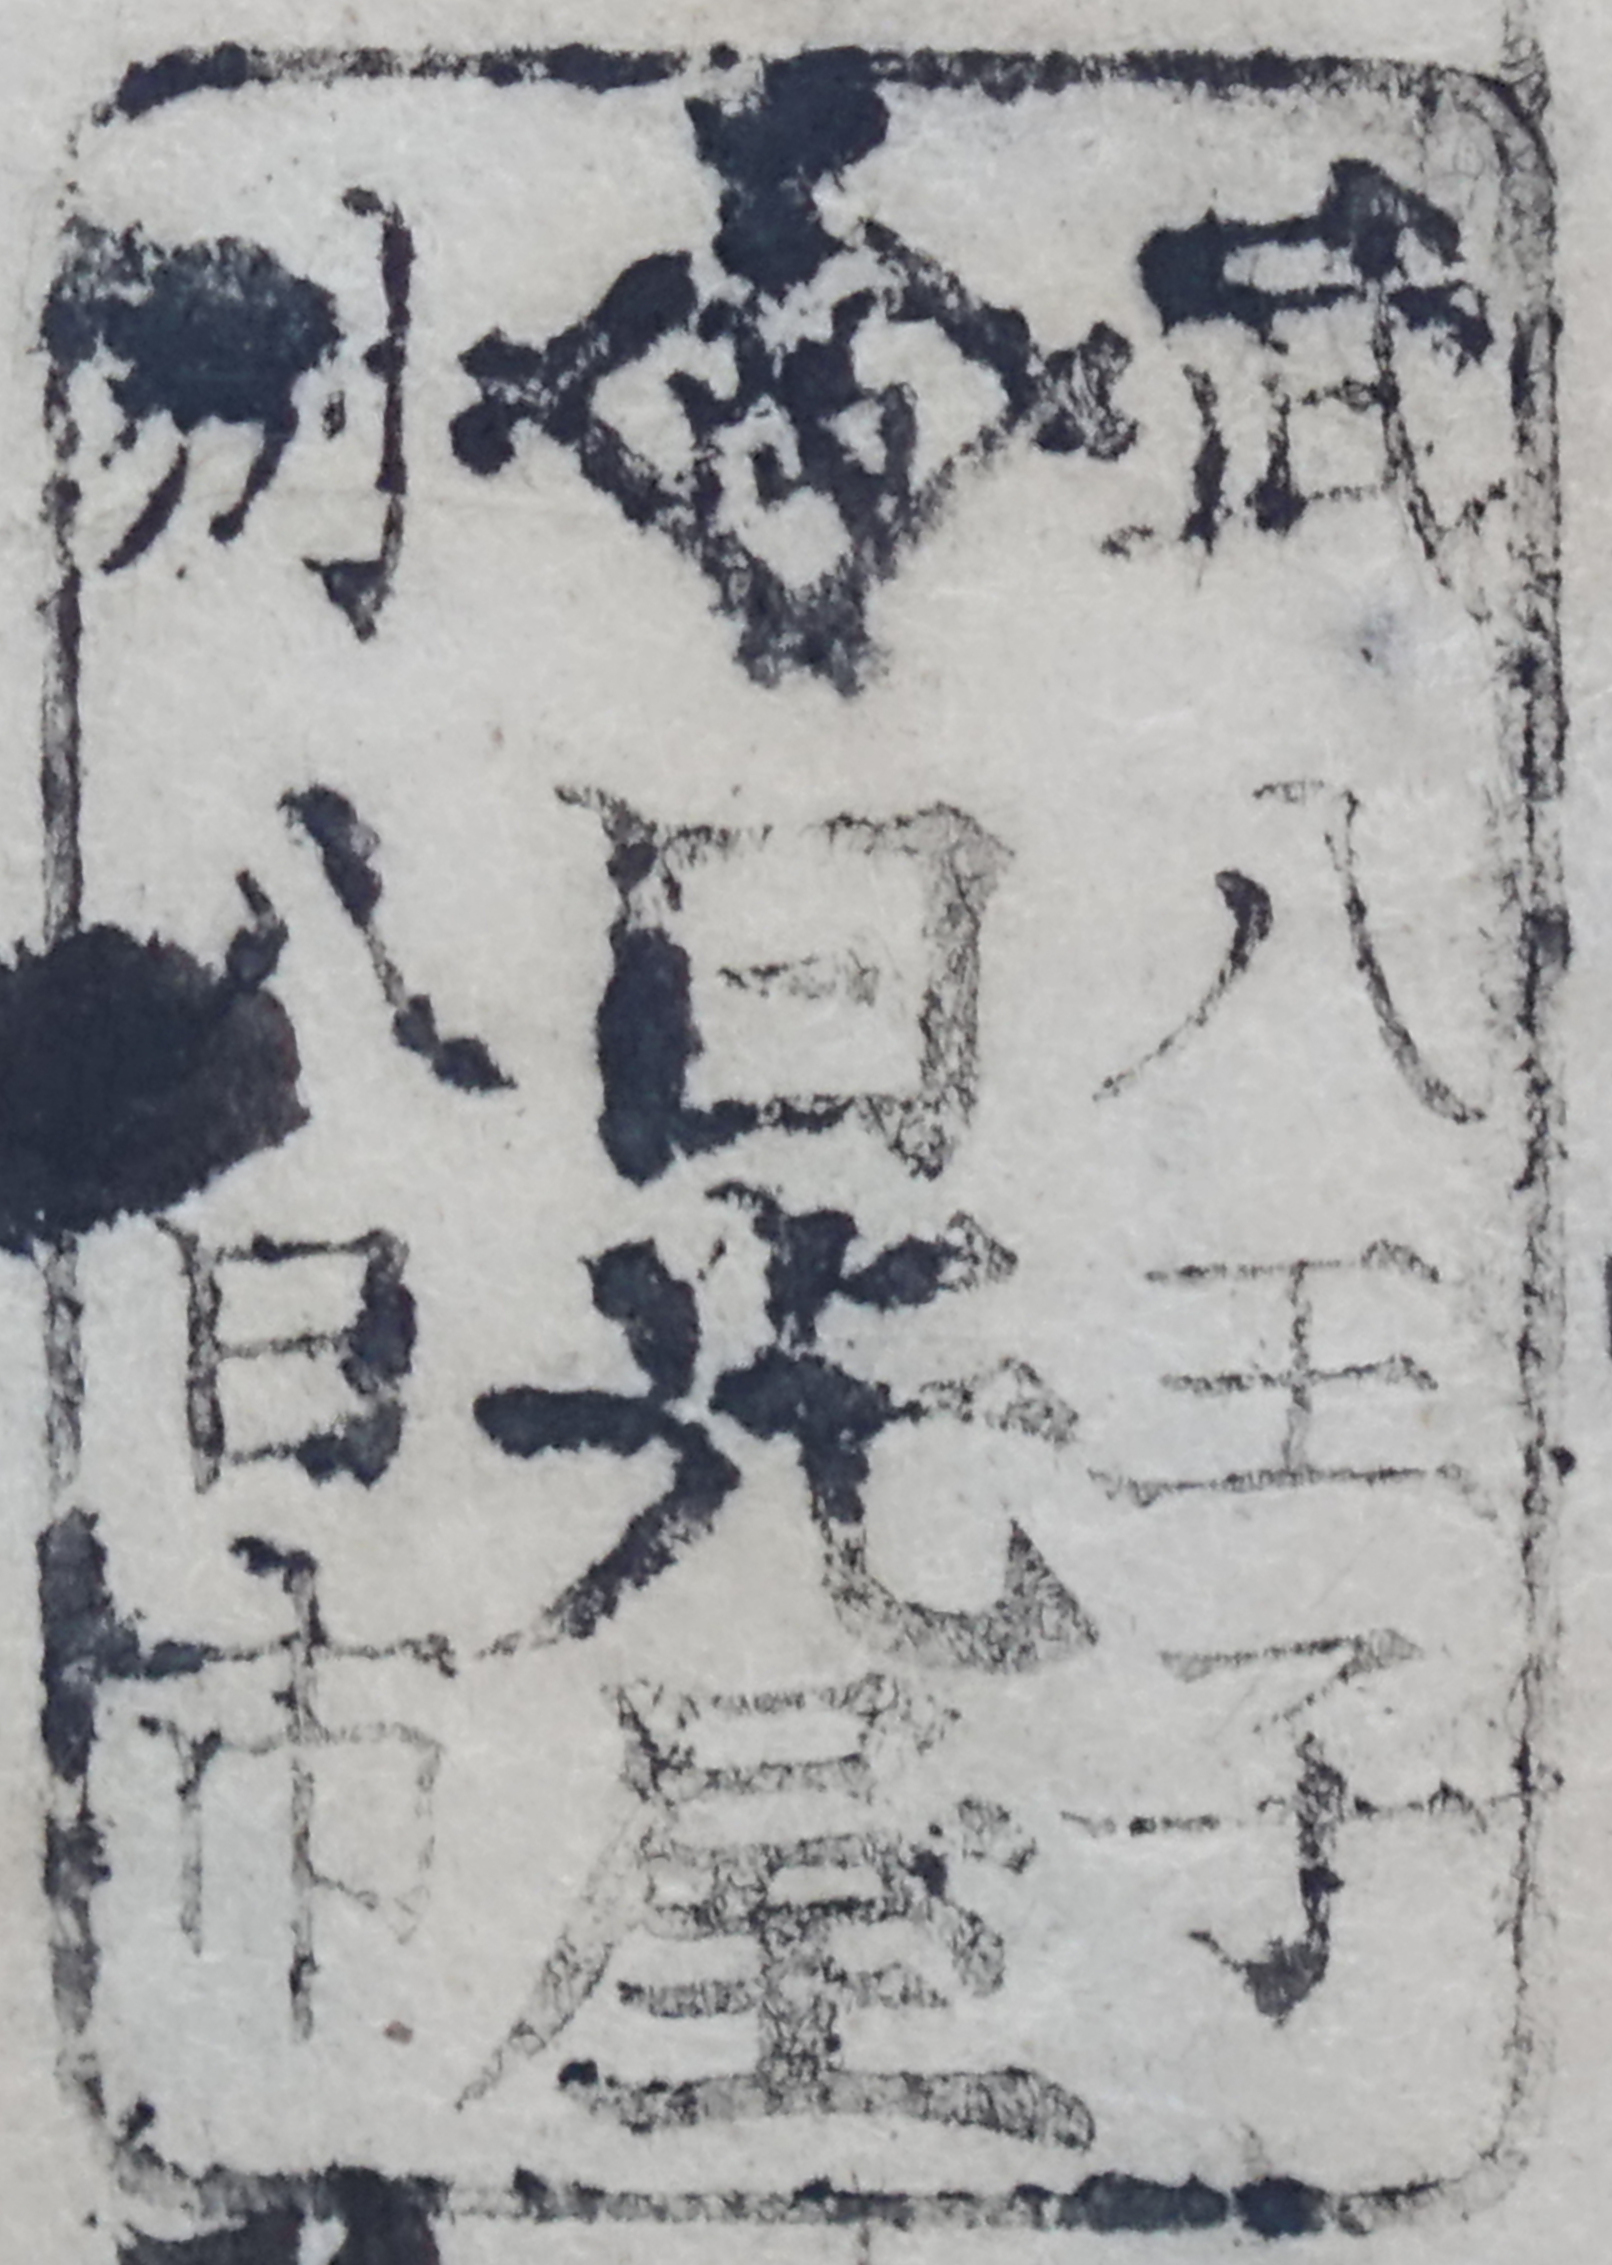 武州
八王子
八日市
日光屋